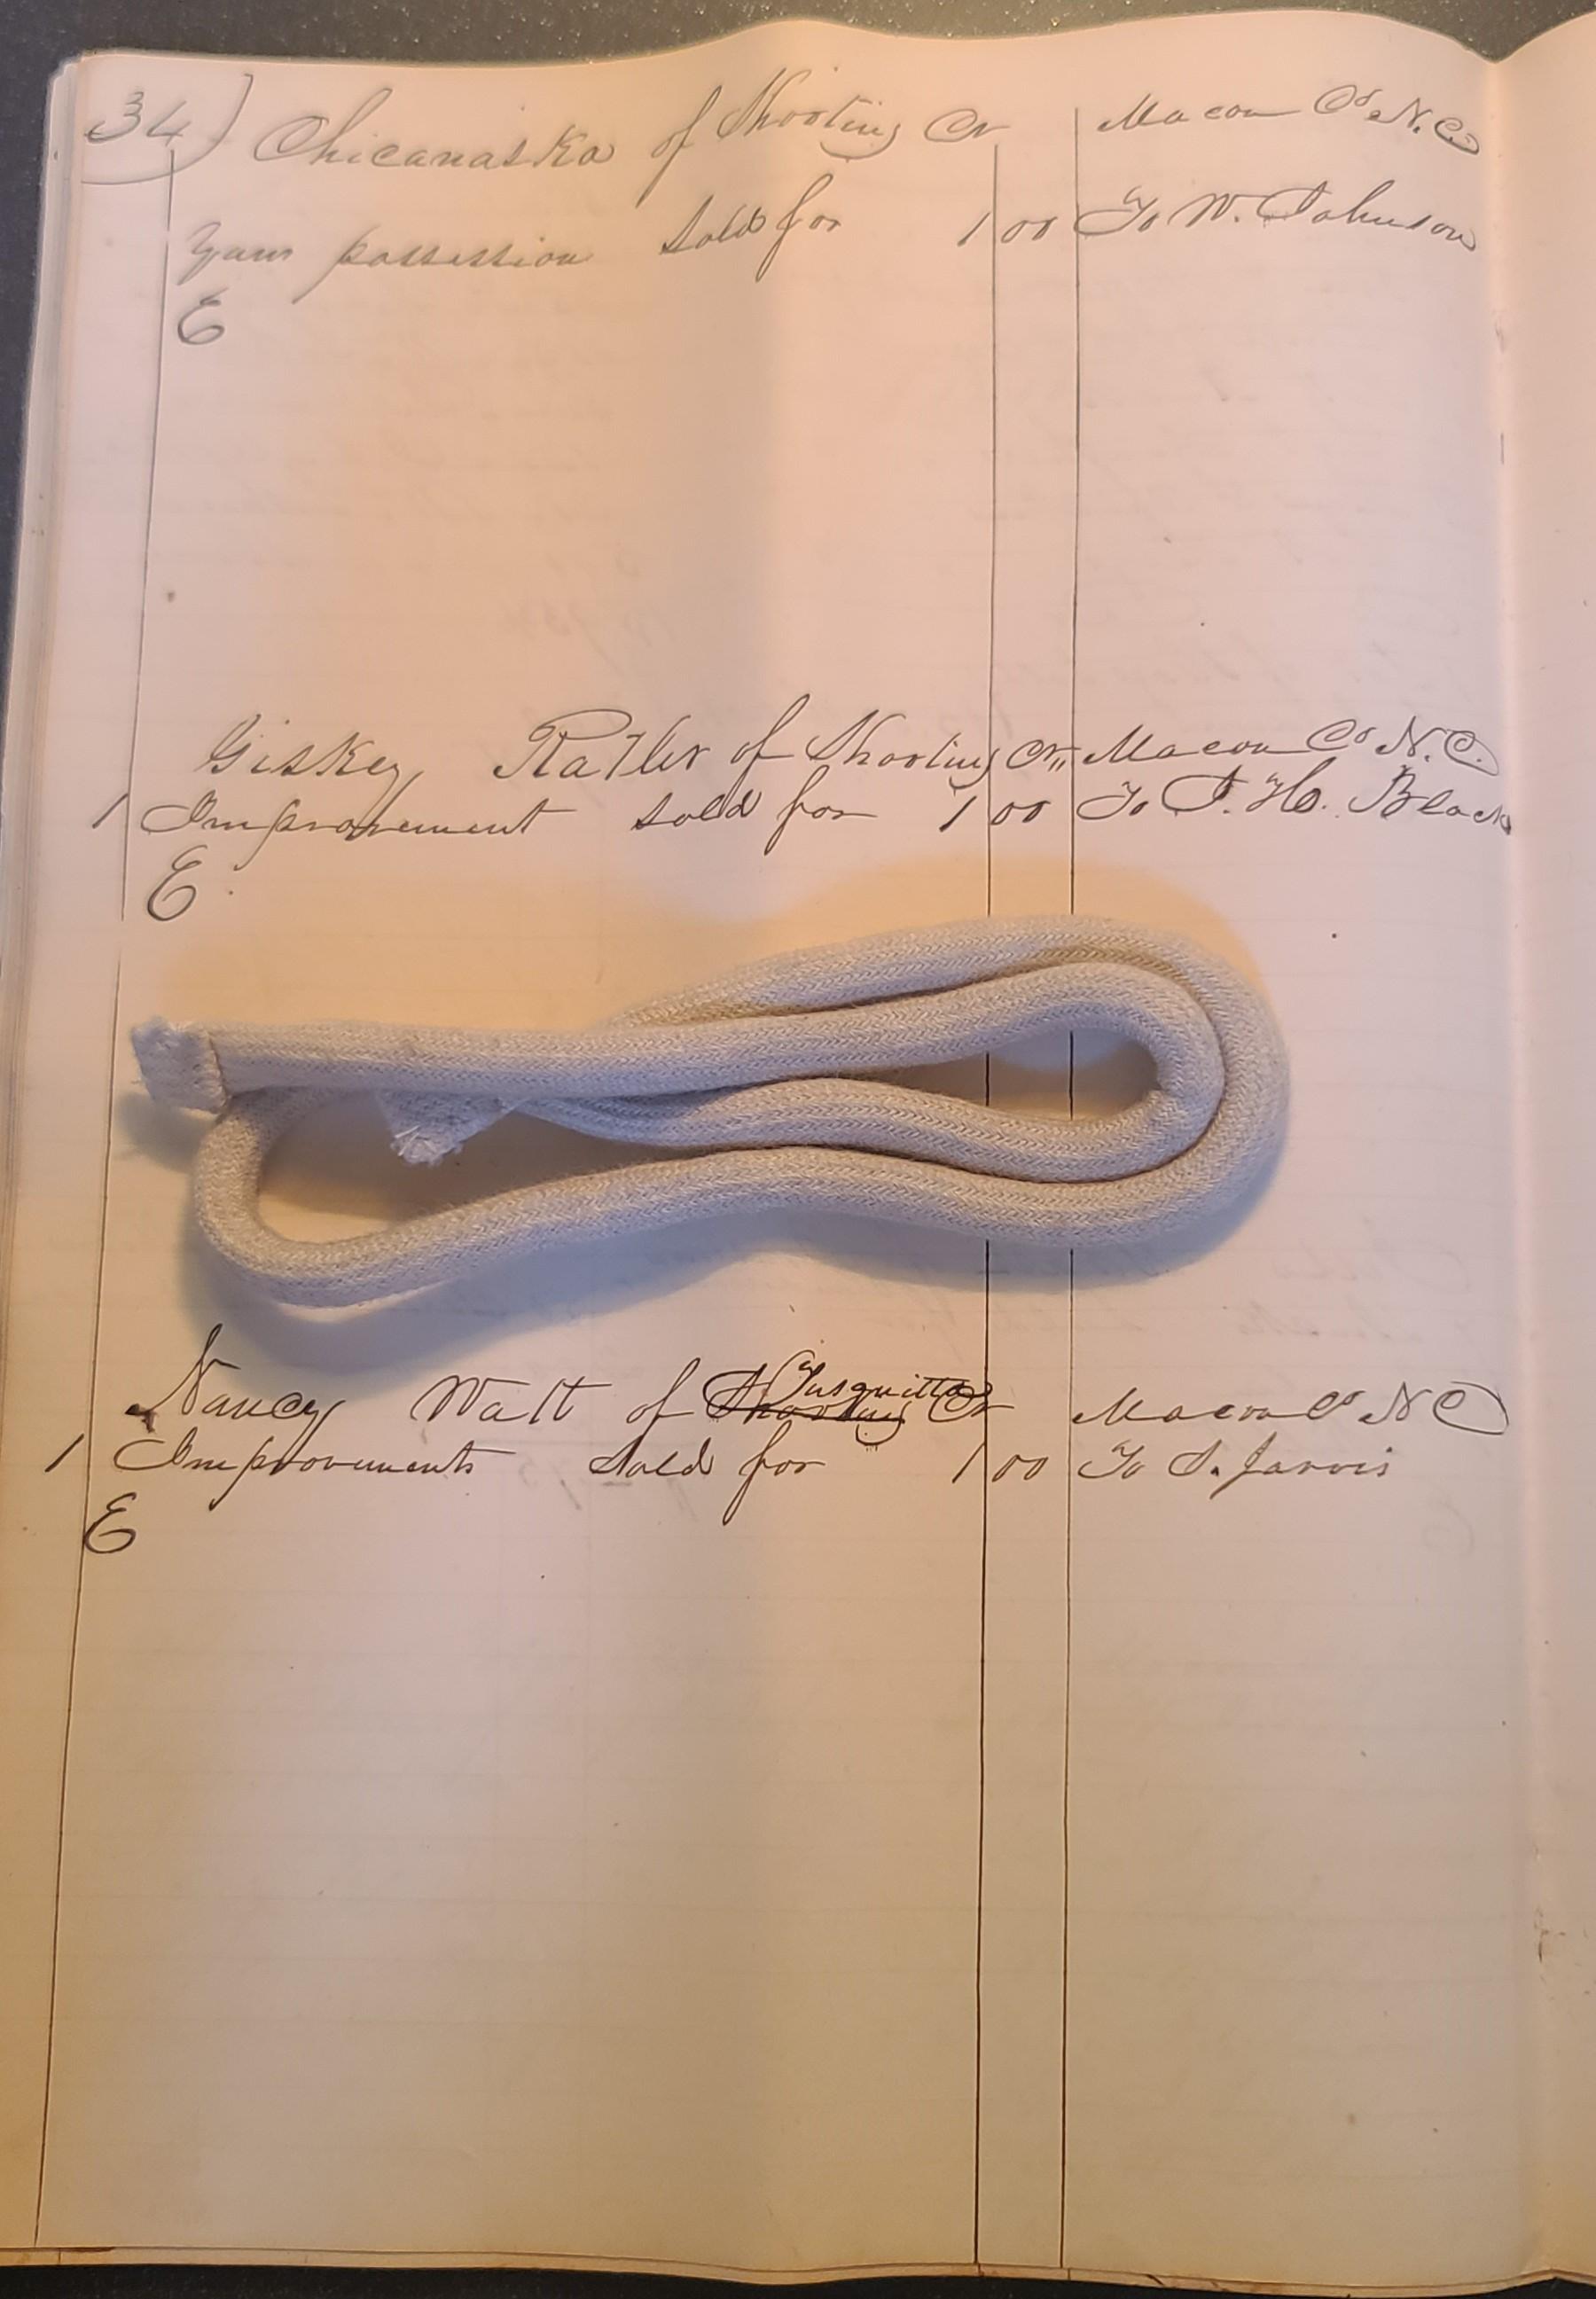 34) Chicanaska of Shooting Cr Macon Co N.C.
Your possession Sold for 1 00 To W. Johnson
E
Giskey Ratler of Shooting Cr Macon Co N.C.
1 Improvement Sold for 1 00 To J. H. Black
E
Tusquitta
Nancy Watt of Shooting Cr Macon Co N C
1 Improvements Sold for 1 00 To S. Jarvis
E